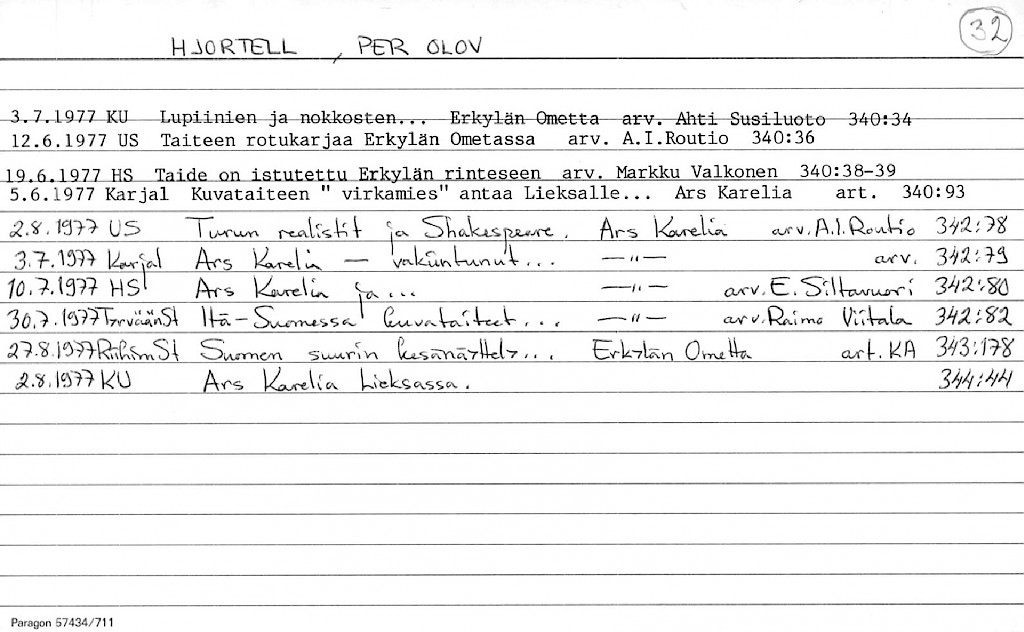 32
HJORTELL , PER OLOV
3.7.1977 KU Lupiinien ja nokkosten... Erkylän Ometta arv. Ahti Susiluoto 340:34
12.6.1977 US Taiteen rotukarjaa Erkylän Ometassa arv. A.I.Routio 340:36
19.6.1977 HS Taide on istutettu Erkylän rinteseen arv. Markku Valkonen 340:38-39
5.6.1977 Karjal Kuvataiteen " virkamies" antaa Lieksalle... Ars Karelia art. 340:93
2.8.1977 US Turun realistit ja Shakespeare. Ars Karelia arv. A.I. Routio 342:78
3.7.1977 Karjal Ars Karelia — vakiintunut... —"— arv. 342:79
10.7.1977 HS Ars Karelia ja... —"— arv. E. Siltavuori 342:80
30.7.1977 TyrväänSt Itä-Suomessa kuvataiteet... —"— arv. Raimo Viitala 342:82
27.8.1977 RiihimSt Suomen suurin kesänäyttely... Erkylän Ometta art. KA 343:178
2.8.1977 KU Ars Karelia Lieksassa. 344:44
Paragon 57434/711